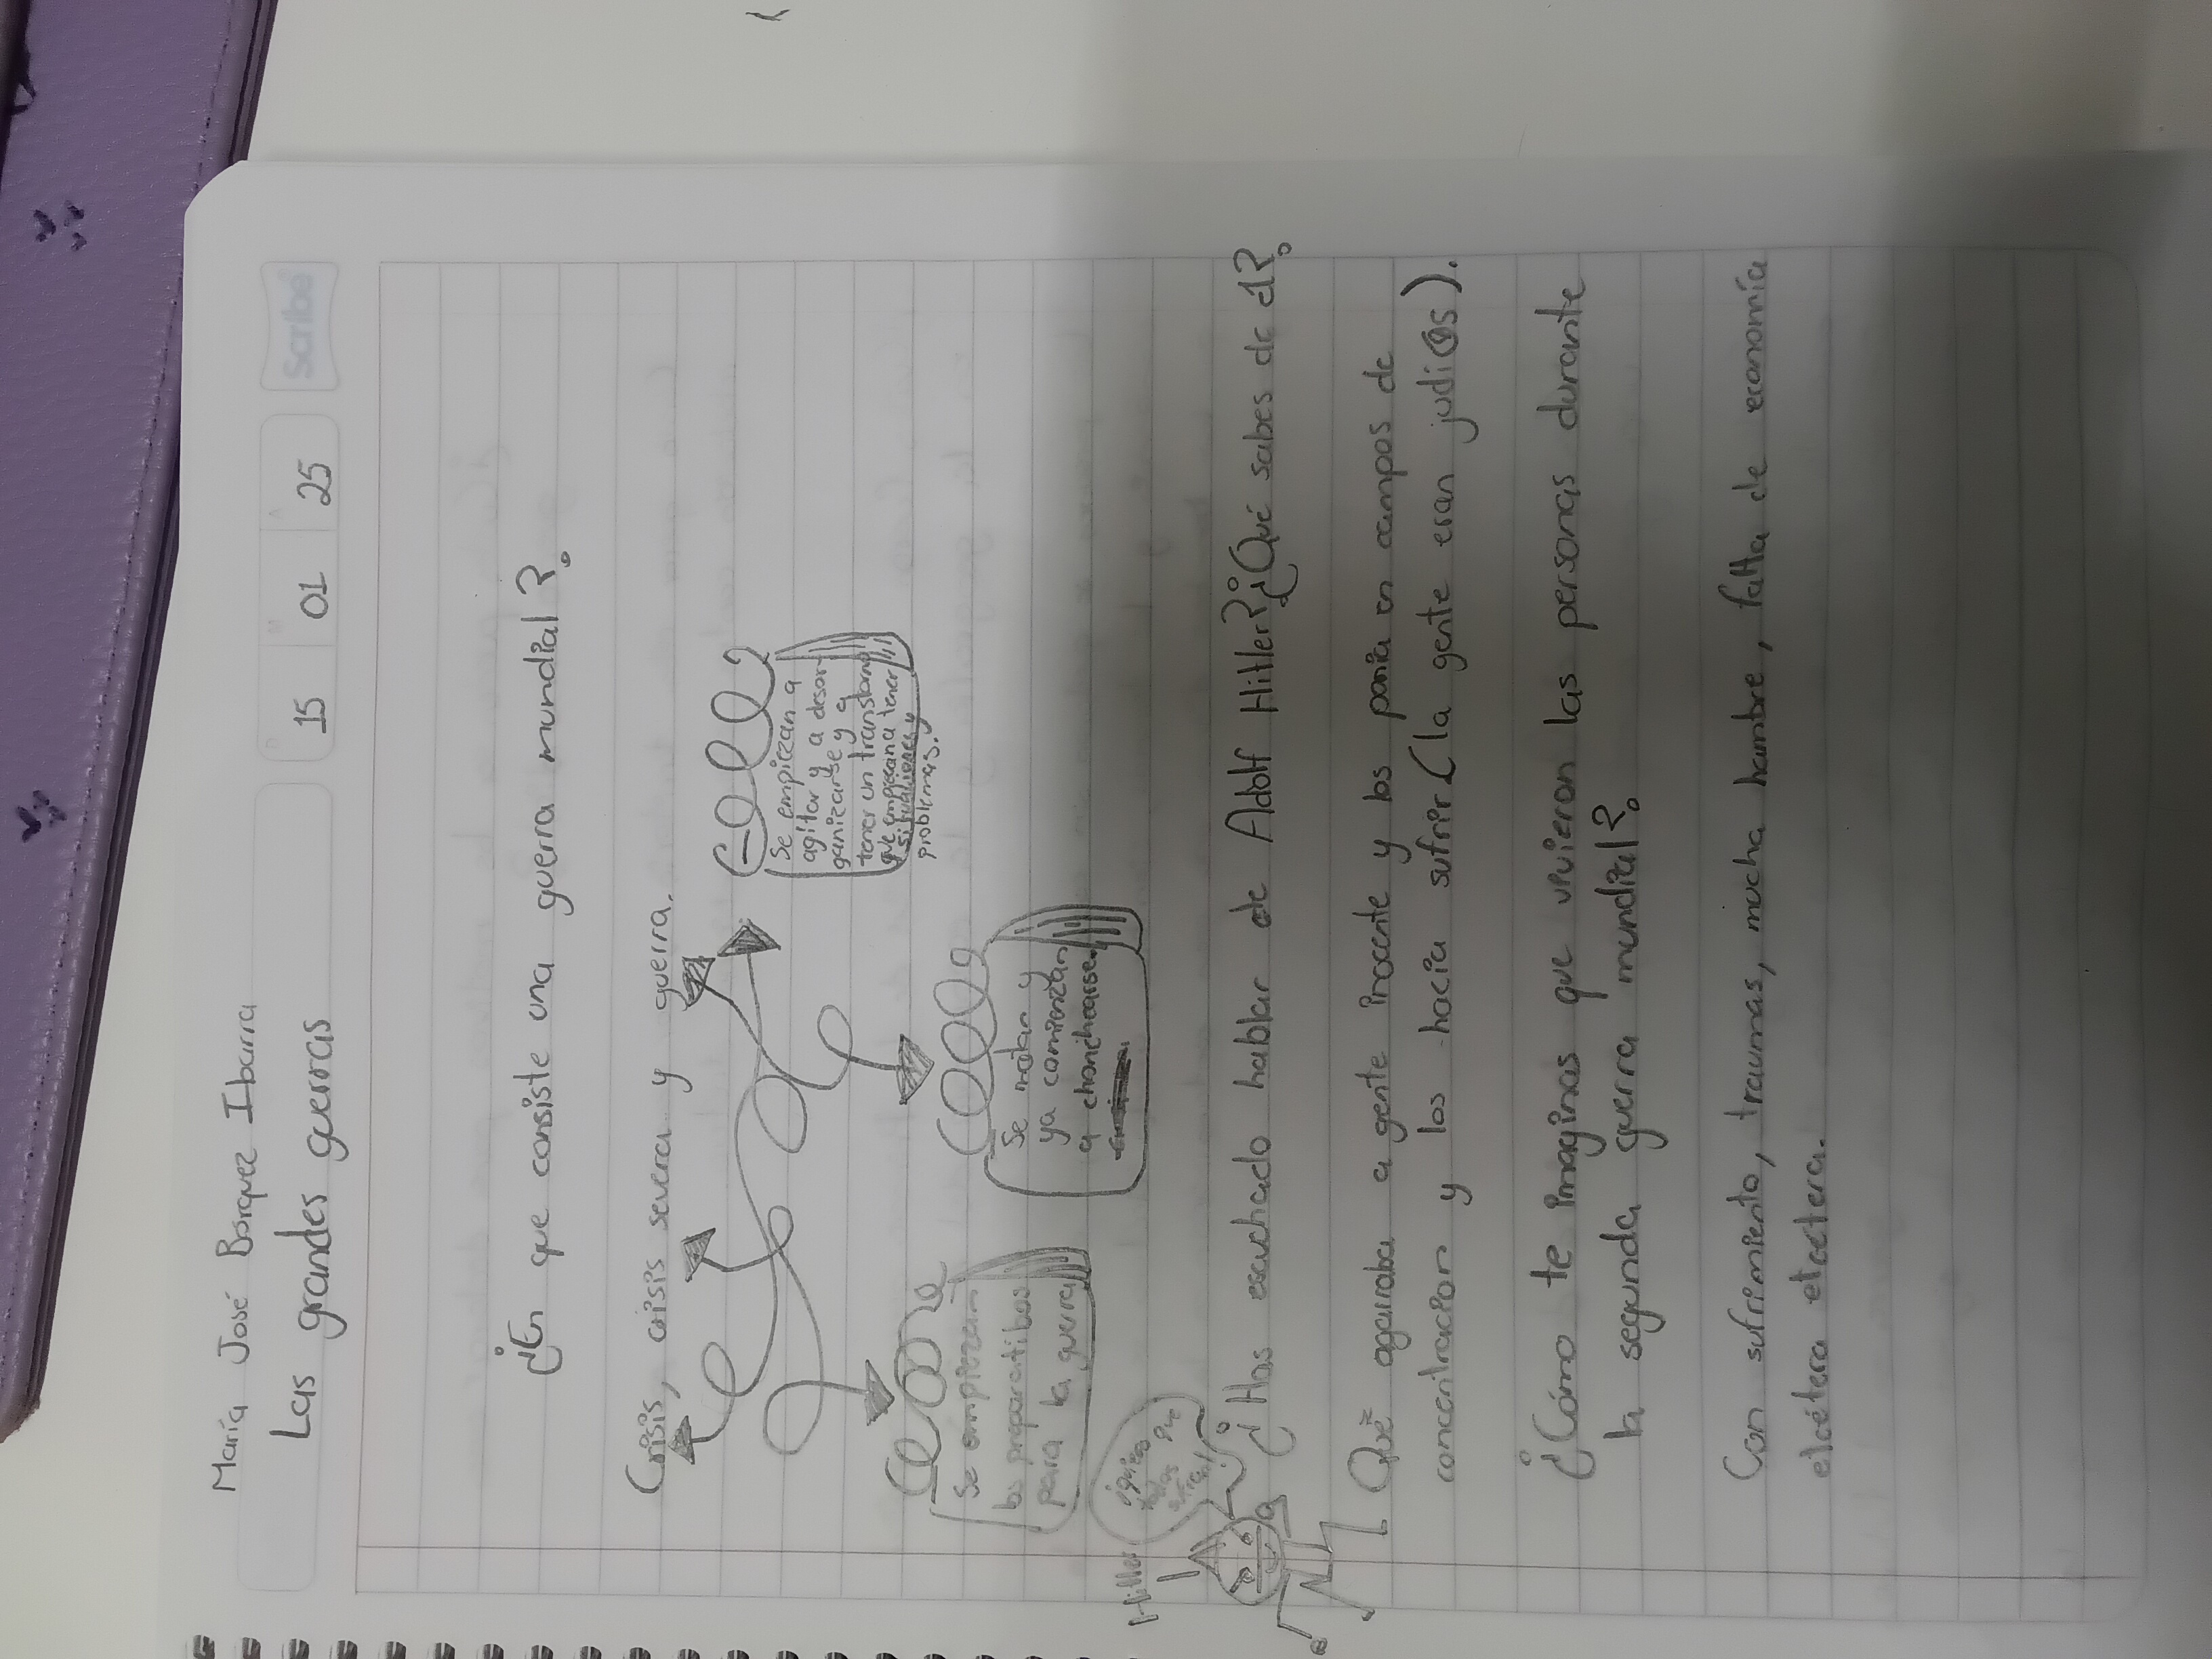 María José Borquez Ibarra
Las grandes guerras
D M A
15 01 25
Scribe
¿En que consiste una guerra mundial?
Crisis, crisis severa y guerra.
Se empiezan a
agitar y a desor
ganizarse y a
tener un transtorno
que empiezan a tener
situaciones y
problemas.
Se notan y
ya comienzan
a
Se empiezan
los preparatibos
para la guerra
Hitler
¡quiero
que
¿Has escuchado hablar de Adolf Hitler? ¿Qué sabes de el?
Qué agarraba a gente inocente y los ponia en campos de
concentracion y los hacía sufrir (la gente eran judios).
¿Cómo te imaginas que vivieron las personas durante
la segunda guerra mundial?
Con sufrimiento, traumas, mucha hambre, falta de economía
etcétera etcetera.